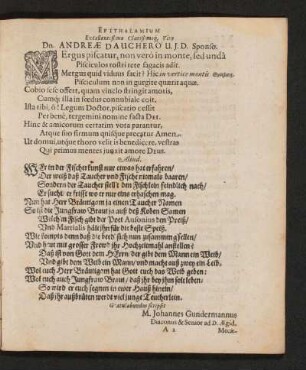 EPITHALAMIUM
Excellentissimo Clarissimoque Viro
Dn. ANDREÆ DAUCHERO U.J.D. Sponso.
MErgus piscatur, non vero in monte, sed undâ
Pisciculos rostri rete fugacis adit.
Mergus quid viduus facit? Hic in vertice montis
Pisciculum non in gurgite quærit aquas.
Cobio sese offert, quam vinclo stringit amoris,
Cumque illa in fœdus connubiale coit.
Ista tibi, ô! Legum Doctor, piscatio cessit
Per benè, tergemini nomine facta Dei.
Hinc & amicorum certatim vota parantur,
Atque suo firmum quisque precatur Amen.
Ut domui atque thoro velit is benedicere vestras
Qui primus mentes junxit amore Deus.
Aliud.
WEr in der Fischerkunst nur etwas hat erfahren/
Der weiß daß Taucher und Fische niemals paaren/
Sondern der Taucher stellt den Fischlein feindlich nach/
Er sucht er fleißt wo er nur eine erhaschen mag.
Nun hat Herr Bräutigam ja einen Taucher Namen
So ist die Jungfrau Braut ja auß deß Kobes Samen
Welch in Fisch gibt der Poet Ausonius den Preiß/
Und Martialis hält ihn für die beste Speiß.
Wie kompts dann daß die beyd sich nun zusammen gesellen/
Und b nun mit grosser Freud ihr Hochzeitmahl anstellen?
Daß ist von Gott dem HErrn der gibt dem Mann ein Weib/
Und gibt dem Weib ein Mann/ und macht auß zwey ein Leib.
Wol euch Herr Bräutigam hat Gott euch das Weib geben:
Wol euch auch Jungfrau Braut/ daß ihr bey ihm solt leben/
So wird er euch segnen in euer Hauß hinein/
Daß ihr außbrüten werdt viel junge Teucherlein.
Gratulabundus scripsit
M. Johannes Gundermannus
Diaconus & Senior ad D. Ægid.
A 2